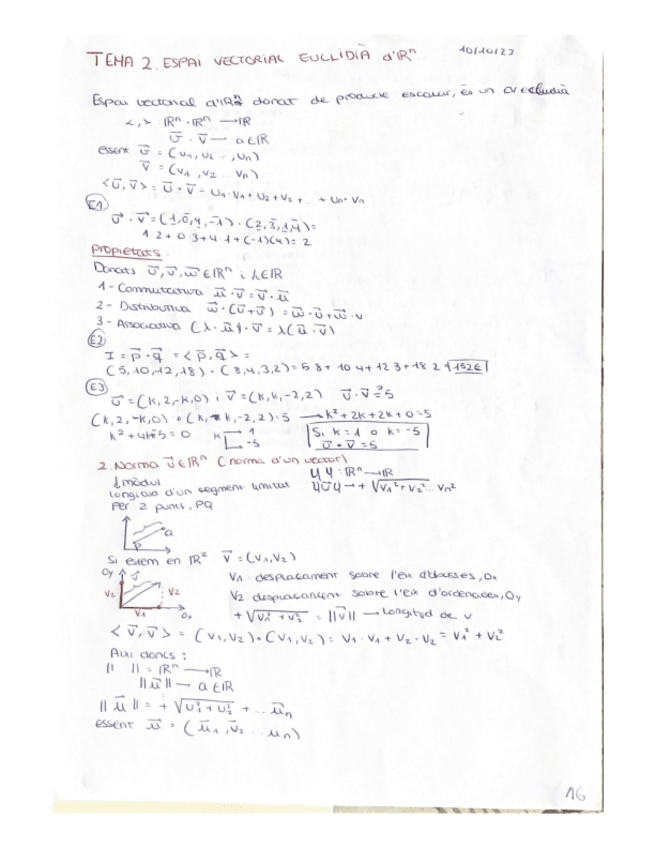 TEMA 2. ESPAI VECTORIAL EUCLIDIÀ d'ℝⁿ 10/10/23
Espai vectorial d'ℝⁿ donat de producte escalar, és un EV euclidià
<,> : ℝⁿ · ℝⁿ → ℝ
u⃗ · v⃗ → a∈ℝ
essent u⃗ = (u₁, u₂ ..., uₙ)
v⃗ = (v₁, v₂ ... vₙ)
<u⃗, v⃗> = u⃗ · v⃗ = u₁ · v₁ + u₂ + v₂ + ... + uₙ · vₙ
E1
u⃗ · v⃗ = (1,0,4,-1) · (2,3,1,4) =
1·2 + 0·3 + 4·1 + (-1)(4) = 2
Propietats:
Donats u⃗, v⃗, w⃗ ∈ ℝⁿ i λ∈ℝ
1 - Commutativa u⃗ · v⃗ = v⃗ · u⃗
2 - Distributiva w⃗ · (u⃗ + v⃗) = w⃗ · u⃗ + w⃗ · v
3 - Associativa (λ · u⃗) · v⃗ = λ(u⃗ · v⃗)
E2
I = p⃗ · q⃗ = <p⃗, q⃗> =
(5,10,12,18) · (8,4,3,2) = 5·8 + 10·4 + 12·3 + 18·2 = 152€
E3
u⃗ = (k,2,-k,0) i v⃗ = (k,k,-2,2) u⃗ · v⃗ =? 5
(k,2,-k,0) · (k,k,-2,2) = 5 → k² + 2k + 2k + 0 = 5
k² + 4k - 5 = 0 k 1 -5 Si k = 1 o k = -5
u⃗ · v⃗ = 5
2. Norma v⃗ ∈ ℝⁿ (norma d'un vector)
mòdul ‖ ‖ : ℝⁿ → ℝ
longitud d'un segment limitat ‖v⃗‖ → +√v₁² + v₂² ... vₙ²
per 2 punts, PQ
P Q
Si estem en ℝ² v⃗ = (v₁, v₂)
Oy v⃗ V₁: desplaçament sobre l'eix d'abscises, Ox
V₂ V₂ V₂: desplaçament sobre l'eix d'ordenades, Oy
V₁ Ox +√v₁² + v₂² = ‖v⃗‖ → Longitud de v
<v⃗, v⃗> = (v₁, v₂) · (v₁, v₂) = v₁ · v₁ + v₂ · v₂ = v₁² + v₂²
Així doncs:
‖ ‖ = ℝⁿ → ℝ
‖u⃗‖ → a∈ℝ
‖u⃗‖ = +√u₁² + u₂² + ... u⃗ₙ
essent u⃗ = (u⃗₁, u⃗₂ ... uₙ)
16